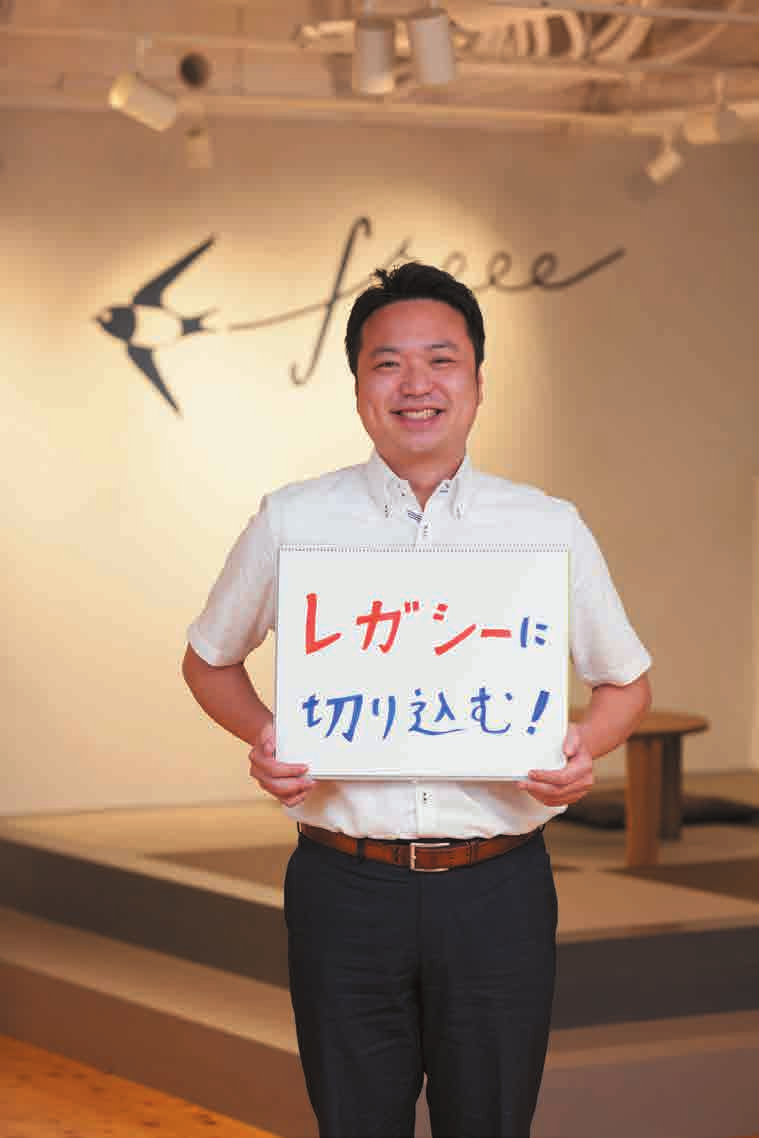 freee
レガシーに
切り込む!